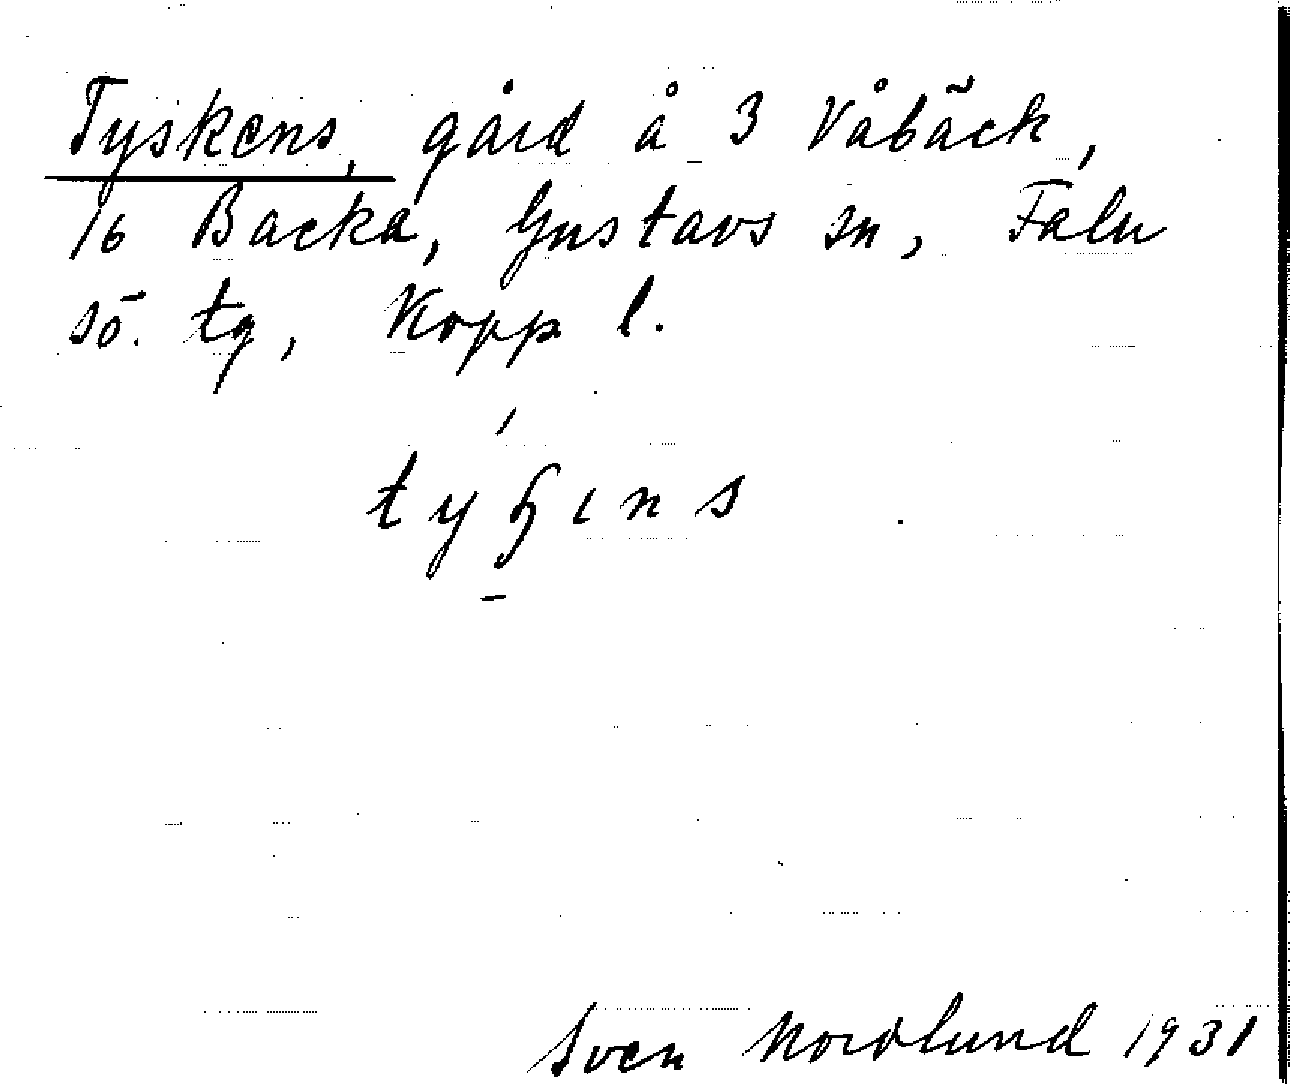 Tyskens, gård å 3 Våbäck,
16 Backa, Gustavs sn, Falu
sö. tg, Kopp l.
Sven Nordlund 1931